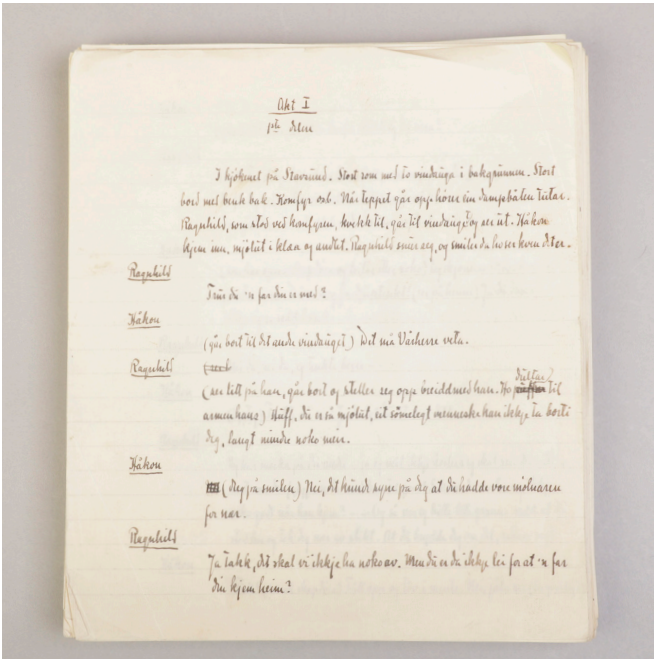 Akt I
1ste delen
I kjøkenet på Stavsund. Stort rom med to vindaugo i bakgrunnen. Stort
bord med benk bak. Komfyr osb. Når teppet går opp hører ein dampbåten tutar.
Ragnhild, som stod ved komfyren, kvekk til, går til vindauget og ser ut. Håkon
kjem inn, mjølut i klæa og andlet. Ragnhild snur seg, og smiler da ho ser kven det er.
Ragnhild
Trur du 'n far din er med?
Håkon
(går bort til det andre vindauget) Det må Vårherre veta.
Ragnhild
(ser litt på han, går bort og steller seg opp breidd med han. Ho dultar til
armen hans) Huff, du er så mjølut, eit sømelegt menneske kan ikkje ta borti
deg, langt mindre noko meir.
Håkon
(dreg på smilen) Nei, det kunde syne på deg at du hadde vore mølnaren
for nær.
Ragnhild
Ja takk, det skal vi ikkje ha noko av. Men du er da ikkje lei for at 'n far
din kjem heim?